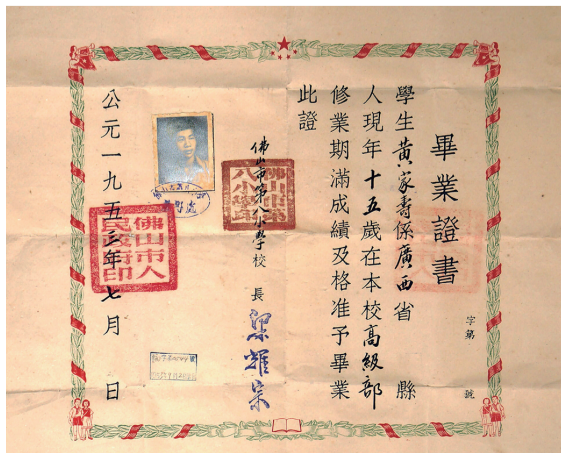 畢業證書
字第 號
學生黄家壽係廣西省 縣
人現年十五歲在本校高級部
修業期滿成績及格准予畢業
此證
佛山市第八小學校長 梁耀宗
佛山市第八小學印
公元一九五三年七月 日
佛山市人民政府印